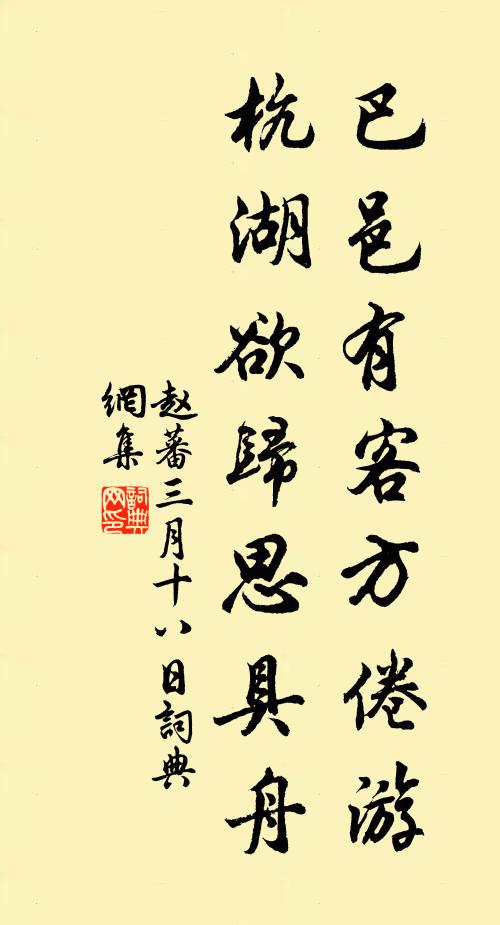 巴邑有客方倦游
杭湖欲歸思具舟
赵蕃三月十八日詞典
網集
詞典网印